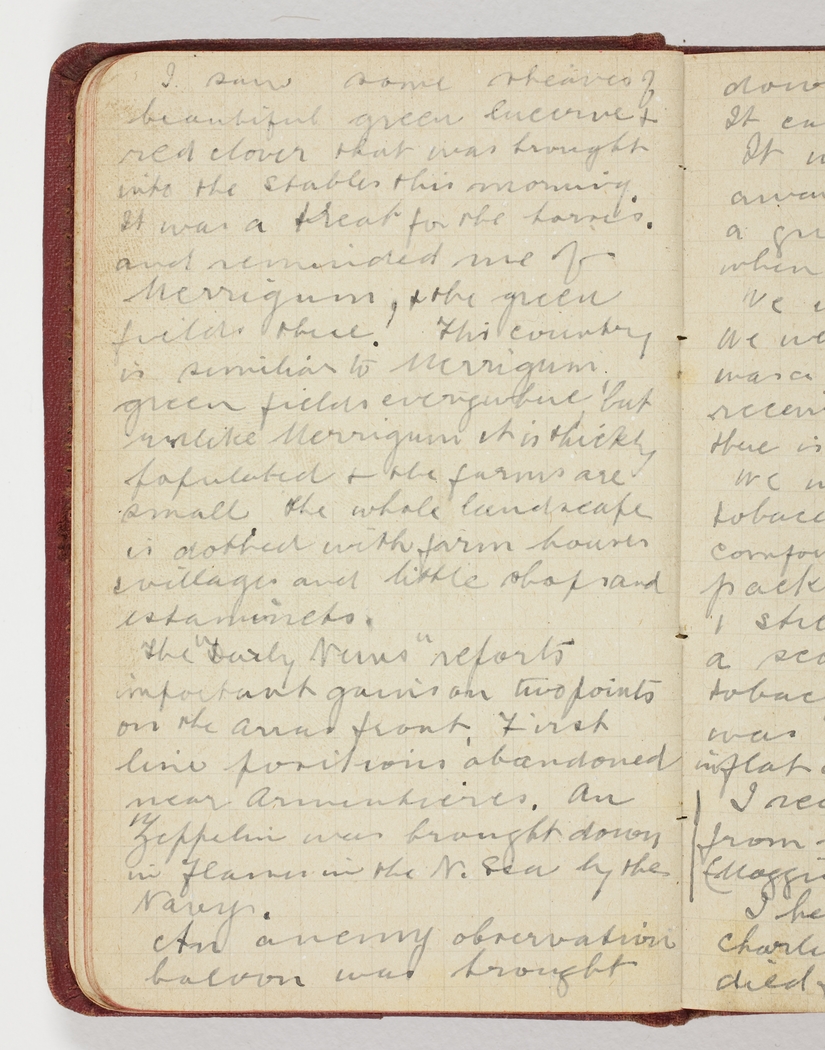 I saw some sheaves of
beautiful green lucerne &
red clover that was brought
into the stables this morning.
It was a treat for the horses.
and reminded me of
Merrigum, & the green
fields there! This country
is similiar to Merrigum.
green fields everywhere, but
unlike Merrigum it is thickly
populated & the farms are
small the whole landscape
is dotted with farm houses
villages and little shops and
estaminets.
The "Daily News" reports
important gains on two points
on the Arras front. First
line positions abandoned
near Armentieres. An
Zeppelin was brought down
in flames in the N. Sea by the
Navy.
An enemy observation
baloon was brought
down
It
It
a
when
We
We
was a
there is
We
tobacco
pack
I
a
tobac
was
inflat
I
from
(Maggie
I
Charlie
died